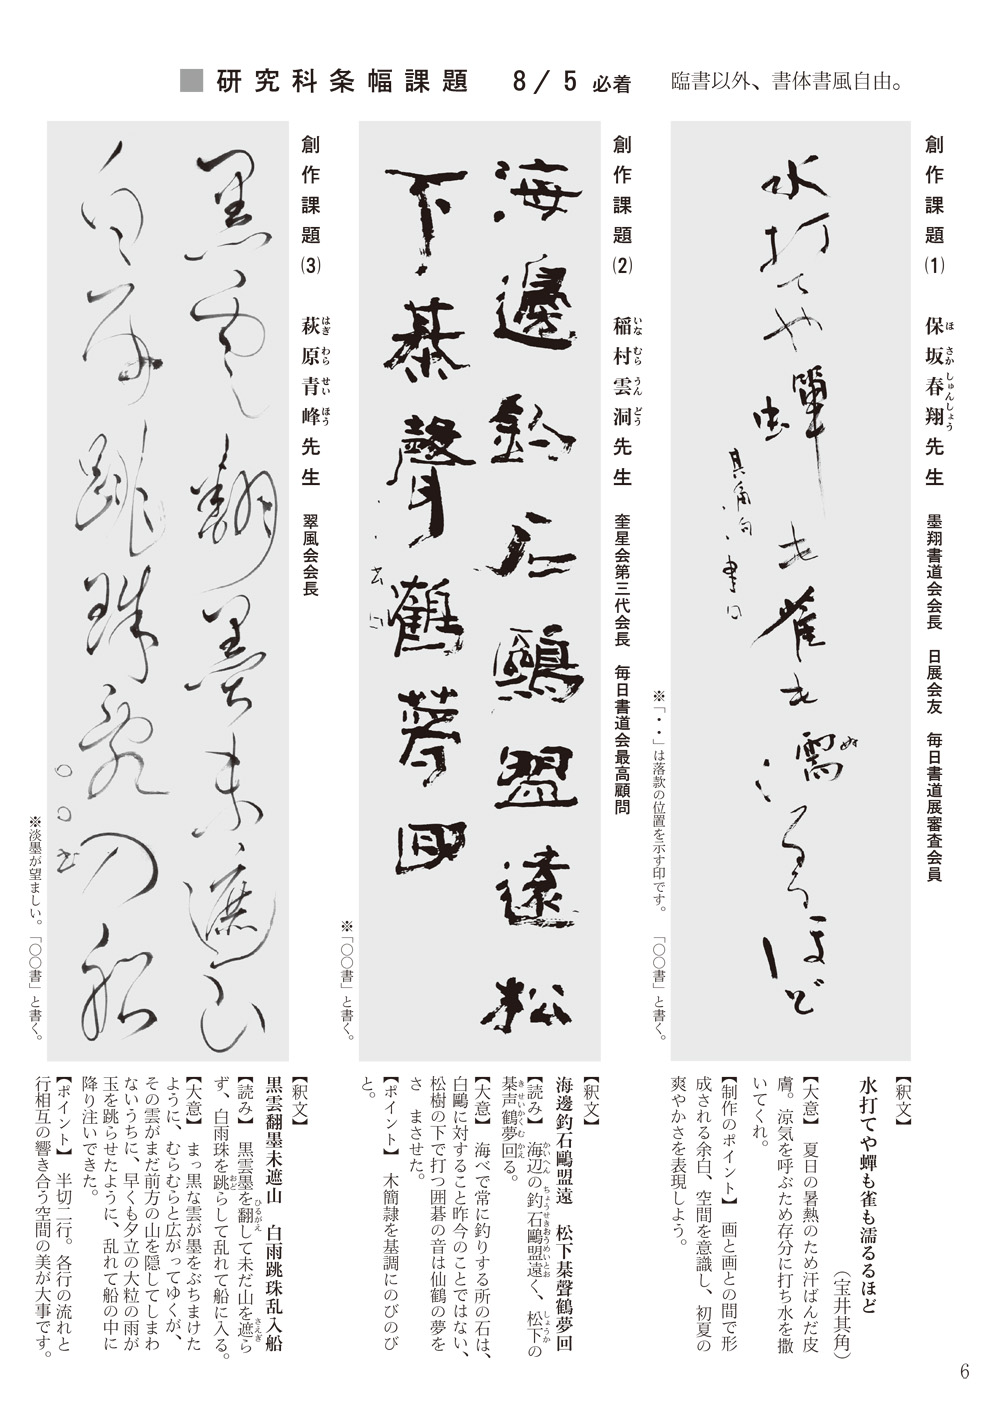 ■研究科条幅課題 8/5必着 臨書以外、書体書風自由。
創作課題(1) 保坂春翔先生 墨翔書道会会長 日展会友 毎日書道展審査会員
ほ さか しゅんしょう
水打てや蟬も雀も濡るるほど
ぬ
其角句 書
※「・・」は落款の位置を示す印です。 「〇〇書」と書く。
【釈文】
水打てや蟬も雀も濡るるほど
（宝井其角）
【大意】 夏日の暑熱のため汗ばんだ皮
膚。涼気を呼ぶため存分に打ち水を撒
いてくれ。
【制作のポイント】 画と画との間で形
成される余白、空間を意識し、初夏の
爽やかさを表現しよう。
創作課題(2) 稲村雲洞先生 奎星会第三代会長 毎日書道会最高顧問
いな むら うん どう
海邊釣石鷗盟遠松
下棊聲鶴夢回
※「〇〇書」と書く。
【釈文】
海邊釣石鷗盟遠 松下棊聲鶴夢回
【読み】 海辺の釣石鷗盟遠く、松下の
かいへん ちょうせきおうめいとお しょうか
棊声鶴夢回る。
きせいかくむかえ
【大意】 海べで常に釣りする所の石は、
白鷗に対すること昨今のことではない、
松樹の下で打つ囲碁の音は仙鶴の夢を
さ まさせた。
【ポイント】 木簡隷を基調にのびのび
と。
創作課題(3) 萩原青峰先生 翠風会会長
はぎ わら せい ほう
黒雲翻墨未遮山
白雨跳珠乱入船
〇〇書
※淡墨が望ましい。「〇〇書」と書く。
【釈文】
黒雲翻墨未遮山 白雨跳珠乱入船
【読み】 黒雲墨を翻して未だ山を遮ら
ひるがえ さえぎ
ず、白雨珠を跳らして乱れて船に入る。
おど
【大意】 まっ黒な雲が墨をぶちまけた
ように、むらむらと広がってゆくが、
その雲がまだ前方の山を隠してしまわ
ないうちに、早くも夕立の大粒の雨が
玉を跳らせたように、乱れて船の中に
降り注いできた。
【ポイント】 半切二行。各行の流れと
行相互の響き合う空間の美が大事です。
6